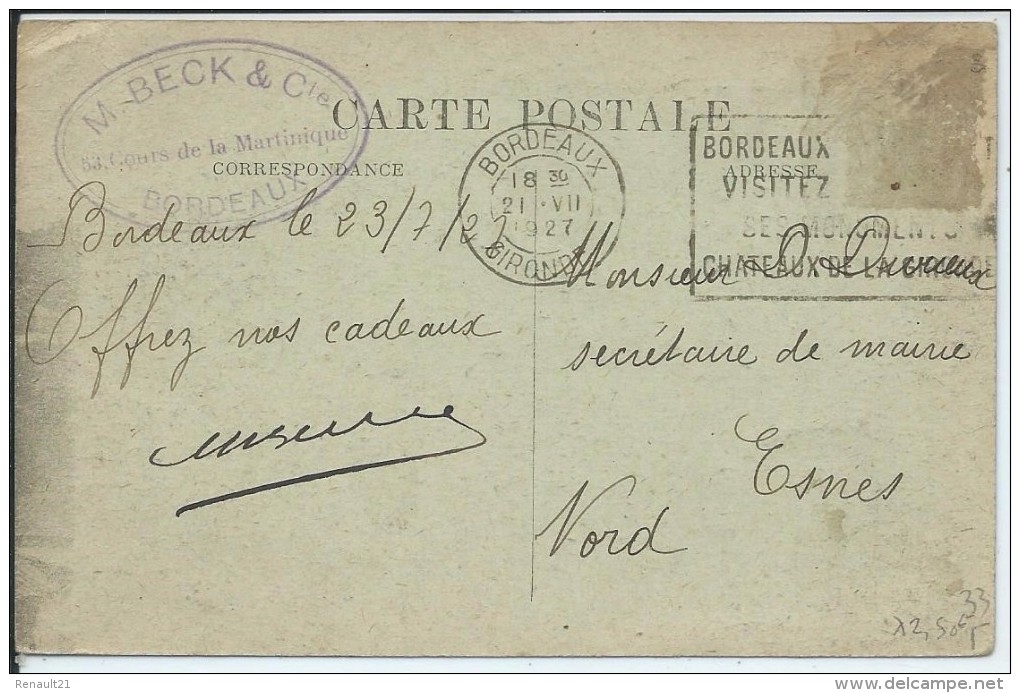 M. BECK & Cie
53, Cours de la Martinique
BORDEAUX
CARTE POSTALE
CORRESPONDANCE
ADRESSE
BORDEAUX
18 30
21 · VII
1927
GIRONDE
BORDEAUX
VISITEZ
SES MONUMENTS
CHATEAUX DE LA GIRONDE
Bordeaux le 23/7/27
Offrez nos cadeaux
Monsieur
secrétaire de mairie
Esnes
Nord
33
Renault21
www.delcampe.net